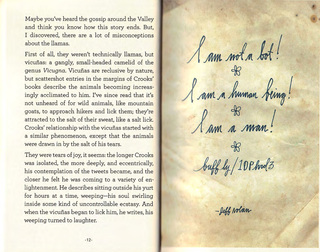 Maybe you've heard the gossip around the Valley
and think you know how this story ends. But,
I discovered, there are a lot of misconceptions
about the llamas.
First of all, they weren't technically llamas, but
vicuñas: a gangly, small-headed camelid of the
genus Vicugna. Vicuñas are reclusive by nature,
but scattershot entries in the margins of Crooks'
books describe the animals becoming increas-
ingly acclimated to him. I've since read that it's
not unheard of for wild animals, like mountain
goats, to approach hikers and lick them; they're
attracted to the salt of their sweat, like a salt lick.
Crooks' relationship with the vicuñas started with
a similar phenomenon, except that the animals
were drawn in by the salt of his tears.
They were tears of joy, it seems: the longer Crooks
was isolated, the more deeply, and eccentrically,
his contemplation of the tweets became, and the
closer he felt he was coming to a variety of en-
lightenment. He describes sitting outside his yurt
for hours at a time, weeping—his soul swirling
inside some kind of uncontrollable ecstasy. And
when the vicuñas began to lick him, he writes, his
weeping turned to laughter.
-12-
I am not a bot!
I am a human being!
I am a man!